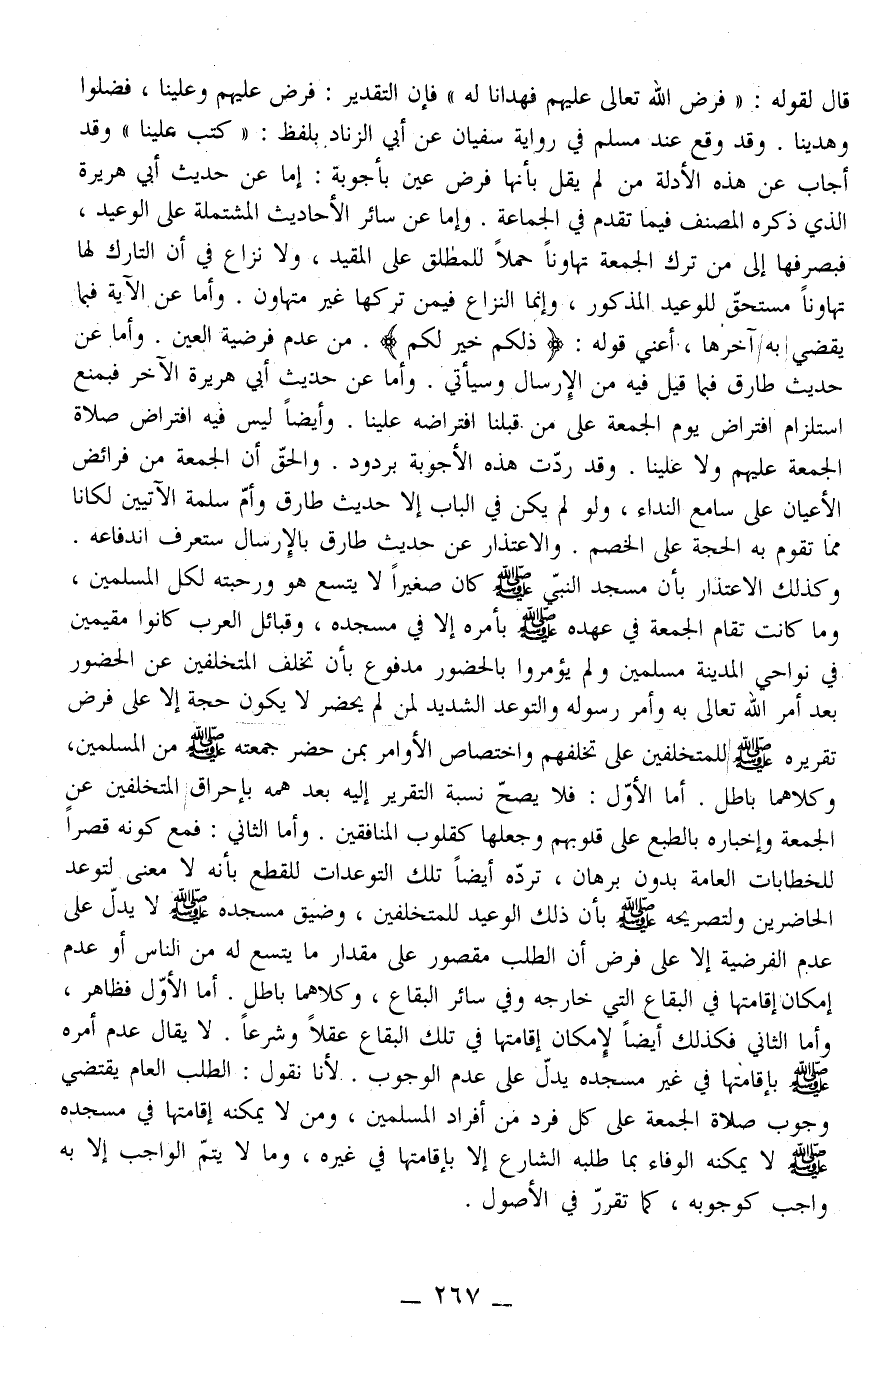 قال لقوله : « فرض الله تعالى عليهم فهدانا له » فإن التقدير : فرض عليهم وعلينا ، فضلوا
وهدينا . وقد وقع عند مسلم في رواية سفيان عن أبي الزناد بلفظ : « كتب علينا » وقد
أجاب عن هذه الأدلة من لم يقل بأنها فرض عين بأجوبة : إما عن حديث أبي هريرة
الذي ذكره المصنف فيما تقدم في الجماعة . وإما عن سائر الأحاديث المشتملة على الوعيد ،
فبصرفها إلى من ترك الجمعة تهاوناً حملاً للمطلق على المقيد ، ولا نزاع في أن التارك لها
تهاوناً مستحقّ للوعيد المذكور ، وإنما النزاع فيمن تركها غير متهاون . وأما عن الآية فبما
يقضي به آخرها ، أعني قوله : ﴿ ذلكم خير لكم ﴾ . من عدم فرضية العين . وأما عن
حديث طارق فبما قيل فيه من الإرسال وسيأتي . وأما عن حديث أبي هريرة الآخر فبمنع
استلزام افتراض يوم الجمعة على من قبلنا افتراضه علينا . وأيضاً ليس فيه افتراض صلاة
الجمعة عليهم ولا علينا . وقد ردّت هذه الأجوبة بردود . والحقّ أن الجمعة من فرائض
الأعيان على سامع النداء ، ولو لم يكن في الباب إلا حديث طارق وأمّ سلمة الآتيين لكانا
مما تقوم به الحجة على الخصم . والاعتذار عن حديث طارق بالإرسال ستعرف اندفاعه .
وكذلك الاعتذار بأن مسجد النبيّ ﷺ كان صغيراً لا يتسع هو ورحبته لكل المسلمين ،
وما كانت تقام الجمعة في عهده ﷺ بأمره إلا في مسجده ، وقبائل العرب كانوا مقيمين
في نواحي المدينة مسلمين ولم يؤمروا بالحضور مدفوع بأن تخلف المتخلفين عن الحضور
بعد أمر الله تعالى به وأمر رسوله والتوعد الشديد لمن لم يحضر لا يكون حجة إلا على فرض
تقريره ﷺ للمتخلفين على تخلفهم واختصاص الأوامر بمن حضر جمعته ﷺ من المسلمين،
وكلاهما باطل . أما الأوّل : فلا يصحّ نسبة التقرير إليه بعد همه بإحراق المتخلفين عن
الجمعة وإخباره بالطبع على قلوبهم وجعلها كقلوب المنافقين . وأما الثاني : فمع كونه قصراً
للخطابات العامة بدون برهان ، تردّه أيضاً تلك التوعدات للقطع بأنه لا معنى لتوعد
الحاضرين ولتصريحه ﷺ بأن ذلك الوعيد للمتخلفين ، وضيق مسجده ﷺ لا يدلّ على
عدم الفرضية إلا على فرض أن الطلب مقصور على مقدار ما يتسع له من الناس أو عدم
إمكان إقامتها في البقاع التي خارجه وفي سائر البقاع ، وكلاهما باطل . أما الأوّل فظاهر ،
وأما الثاني فكذلك أيضاً لإمكان إقامتها في تلك البقاع عقلاً وشرعاً . لا يقال عدم أمره
ﷺ بإقامتها في غير مسجده يدلّ على عدم الوجوب . لأنا نقول : الطلب العام يقتضي
وجوب صلاة الجمعة على كل فرد من أفراد المسلمين ، ومن لا يمكنه إقامتها في مسجده
ﷺ لا يمكنه الوفاء بما طلبه الشارع إلا بإقامتها في غيره ، وما لا يتمّ الواجب إلا به
واجب كوجوبه ، كما تقررّ في الأصول .
_ ٢٦٧ _